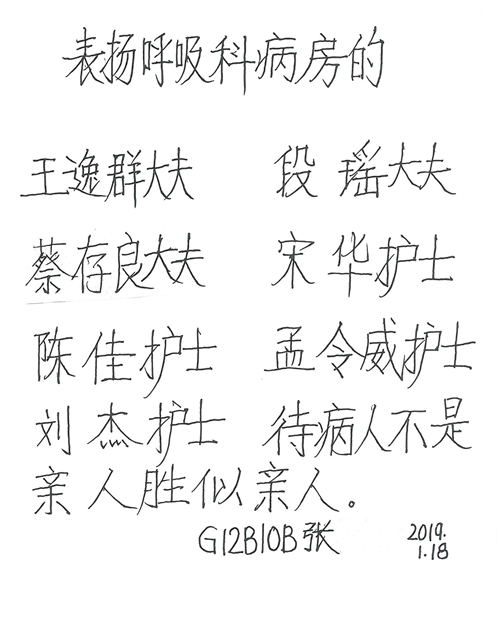 表扬呼吸科病房的
王逸群大夫 段瑶大夫
蔡存良大夫 宋华护士
陈佳护士 孟令威护士
刘杰护士 待病人不是
亲人胜似亲人。
G12B10B张 2019.
1.18